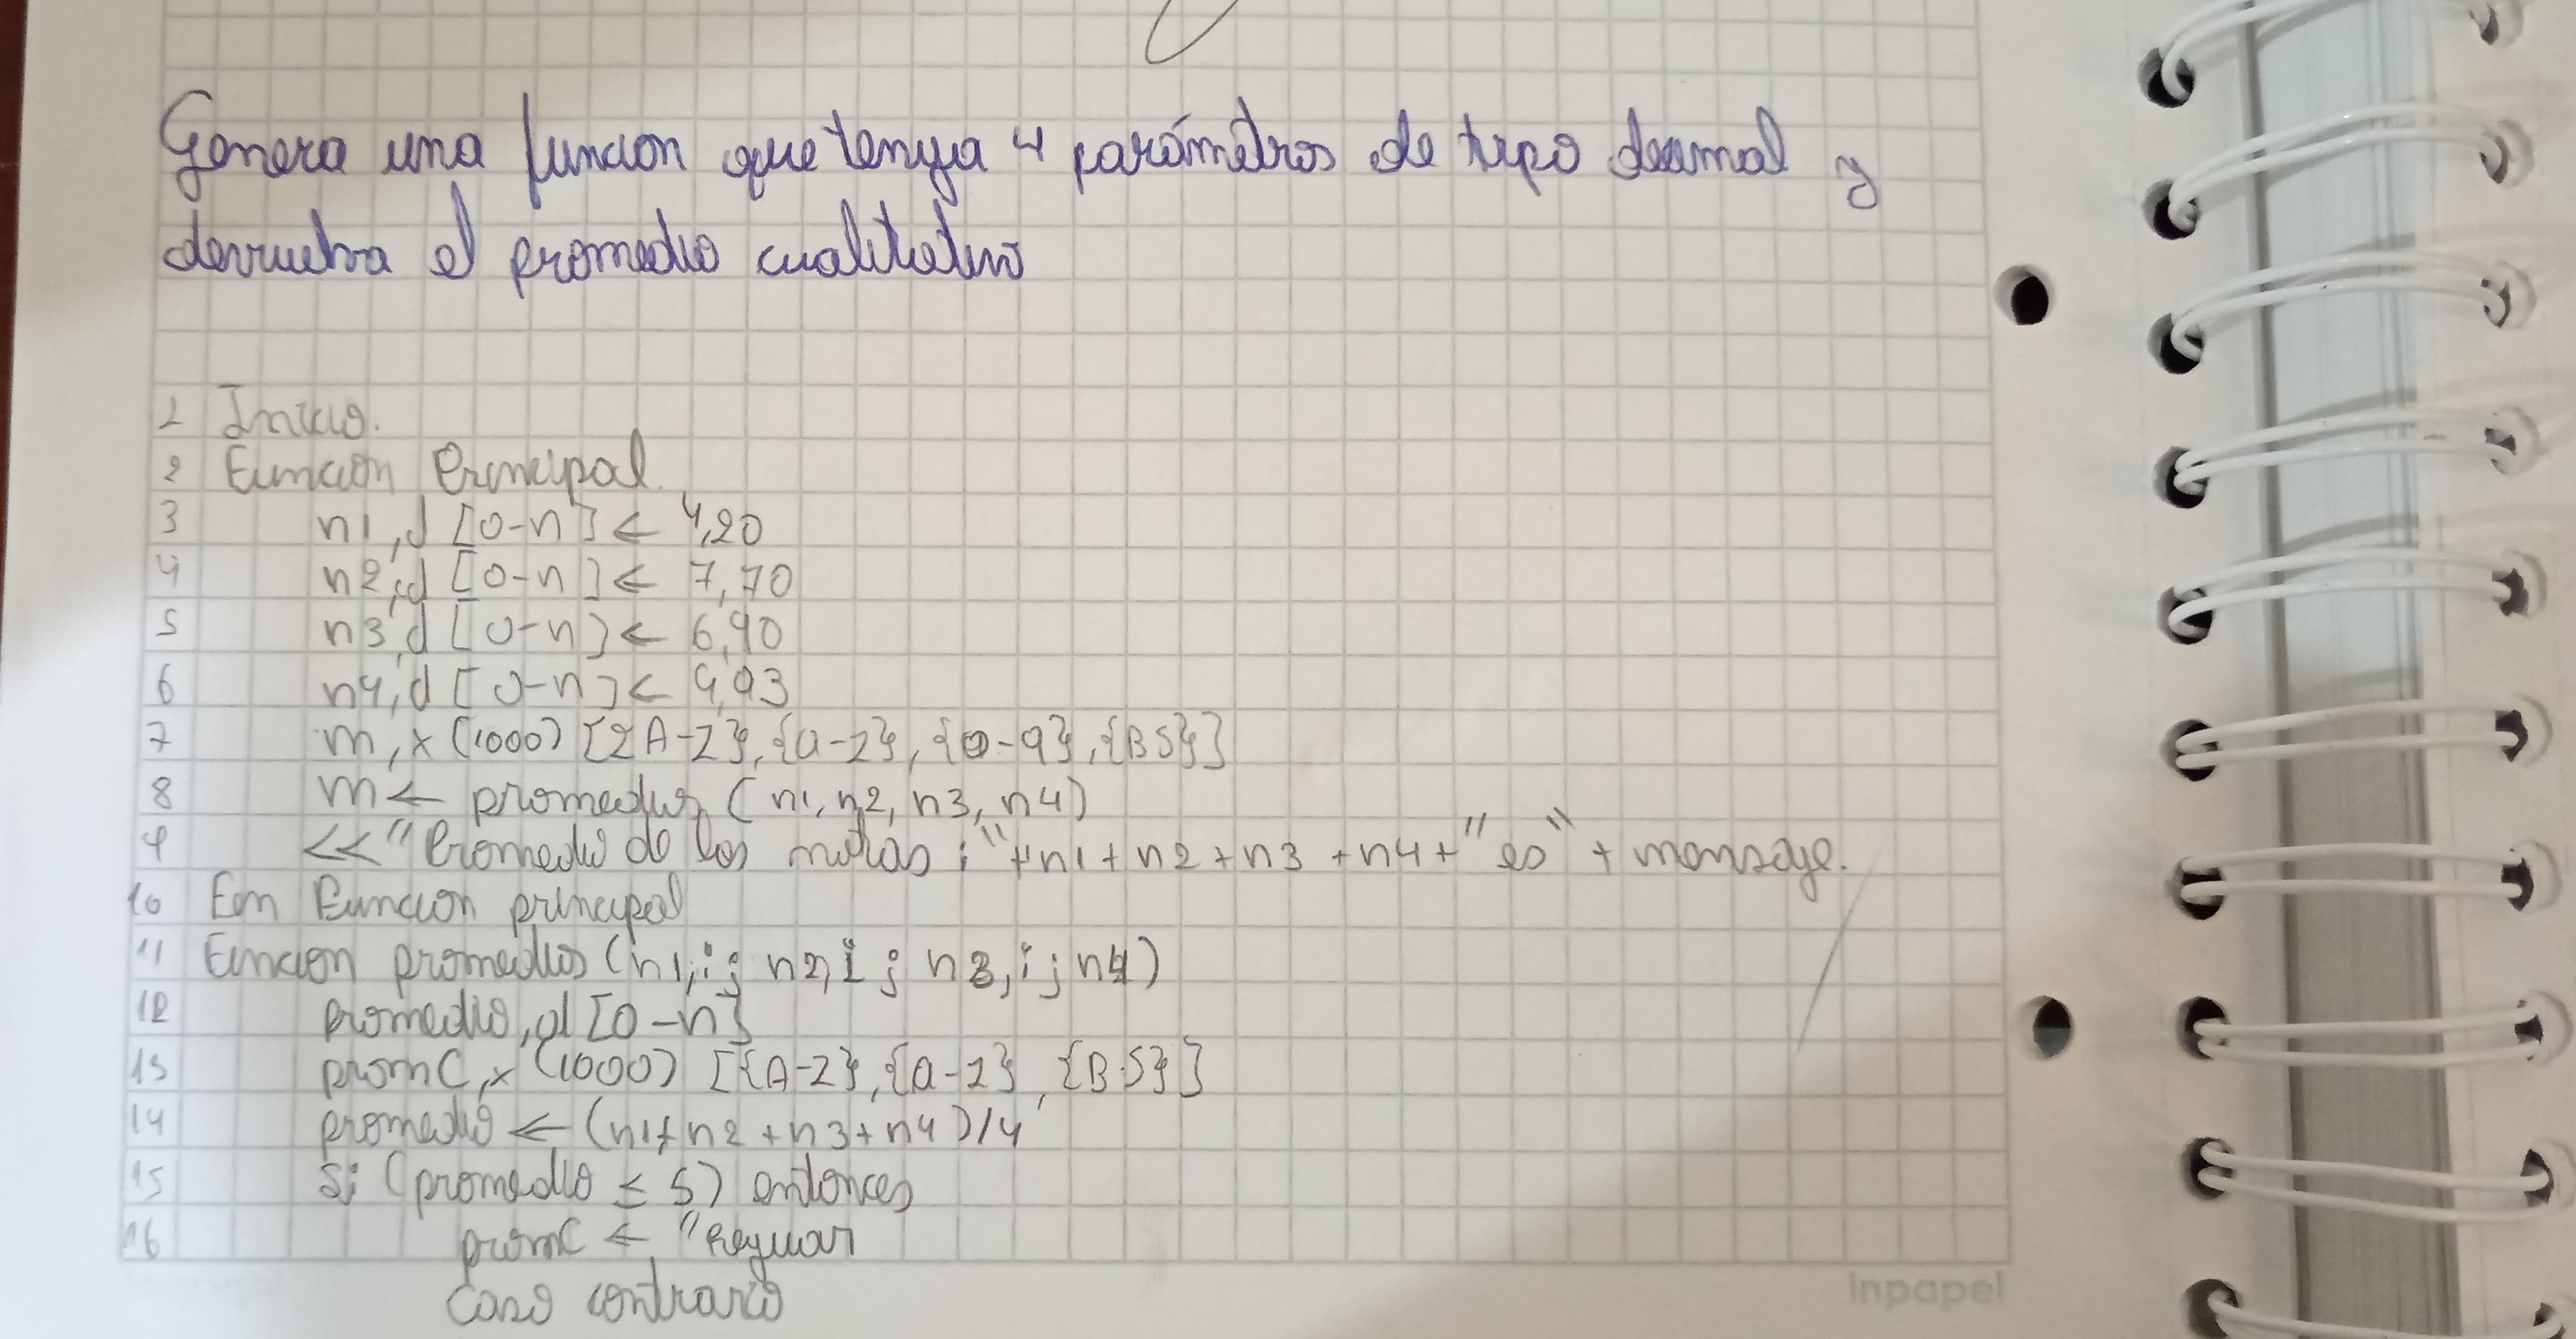 Genera una funcion que tenga 4 parámetros de tipo decimal y
devuelva el promedio cualitativo
1 Inicio.
2 Funcion Principal
3 n1,d [0-n] ← 4,20
4 n2,d [0-n] ← 7,70
5 n3,d [0-n] ← 6,90
6 n4,d [0-n] ← 9,93
7 m,x (1000) [{A-Z},{a-z},{0-9},{BS}]
8 m ← promedios (n1,n2,n3,n4)
9 << "Promedio de las notas : "+n1+n2+n3+n4+" es "+mensaje.
10 Fin Funcion principal
11 Funcion promedios (n1,i; n2,i; n3,i; n4)
12 promedio,d [0-n]
13 promC,x (1000) [{A-Z},{a-z},{BS}]
14 promedio ← (n1+n2+n3+n4)/4
15 Si (promedio ≤ 5) entonces
16 promC ← "Reguar
caso contrario
inpapel